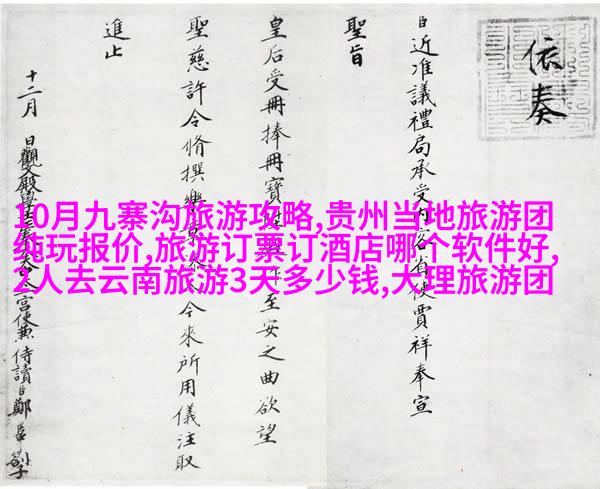 依奏
臣近准議禮局承受內客省使賈祥奉宣
聖旨
皇后受冊捧冊寶至安之曲欲望
聖慈許令脩撰樂今來所用儀注取
進止
十二月 日觀文殿學士宮使兼侍讀臣鄭
10月九寨沟旅游攻略,贵州当地旅游团
纯玩报价,旅游订票订酒店哪个软件好,
2人去云南旅游3天多少钱,大理旅游团